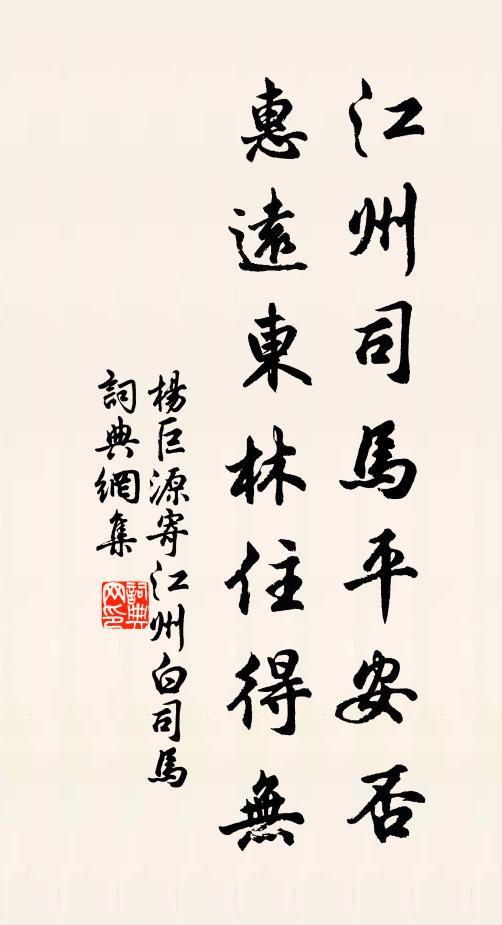 江州司馬平安否
惠遠東林住得無
楊巨源寄江州白司馬
詞典網集
詞典网印